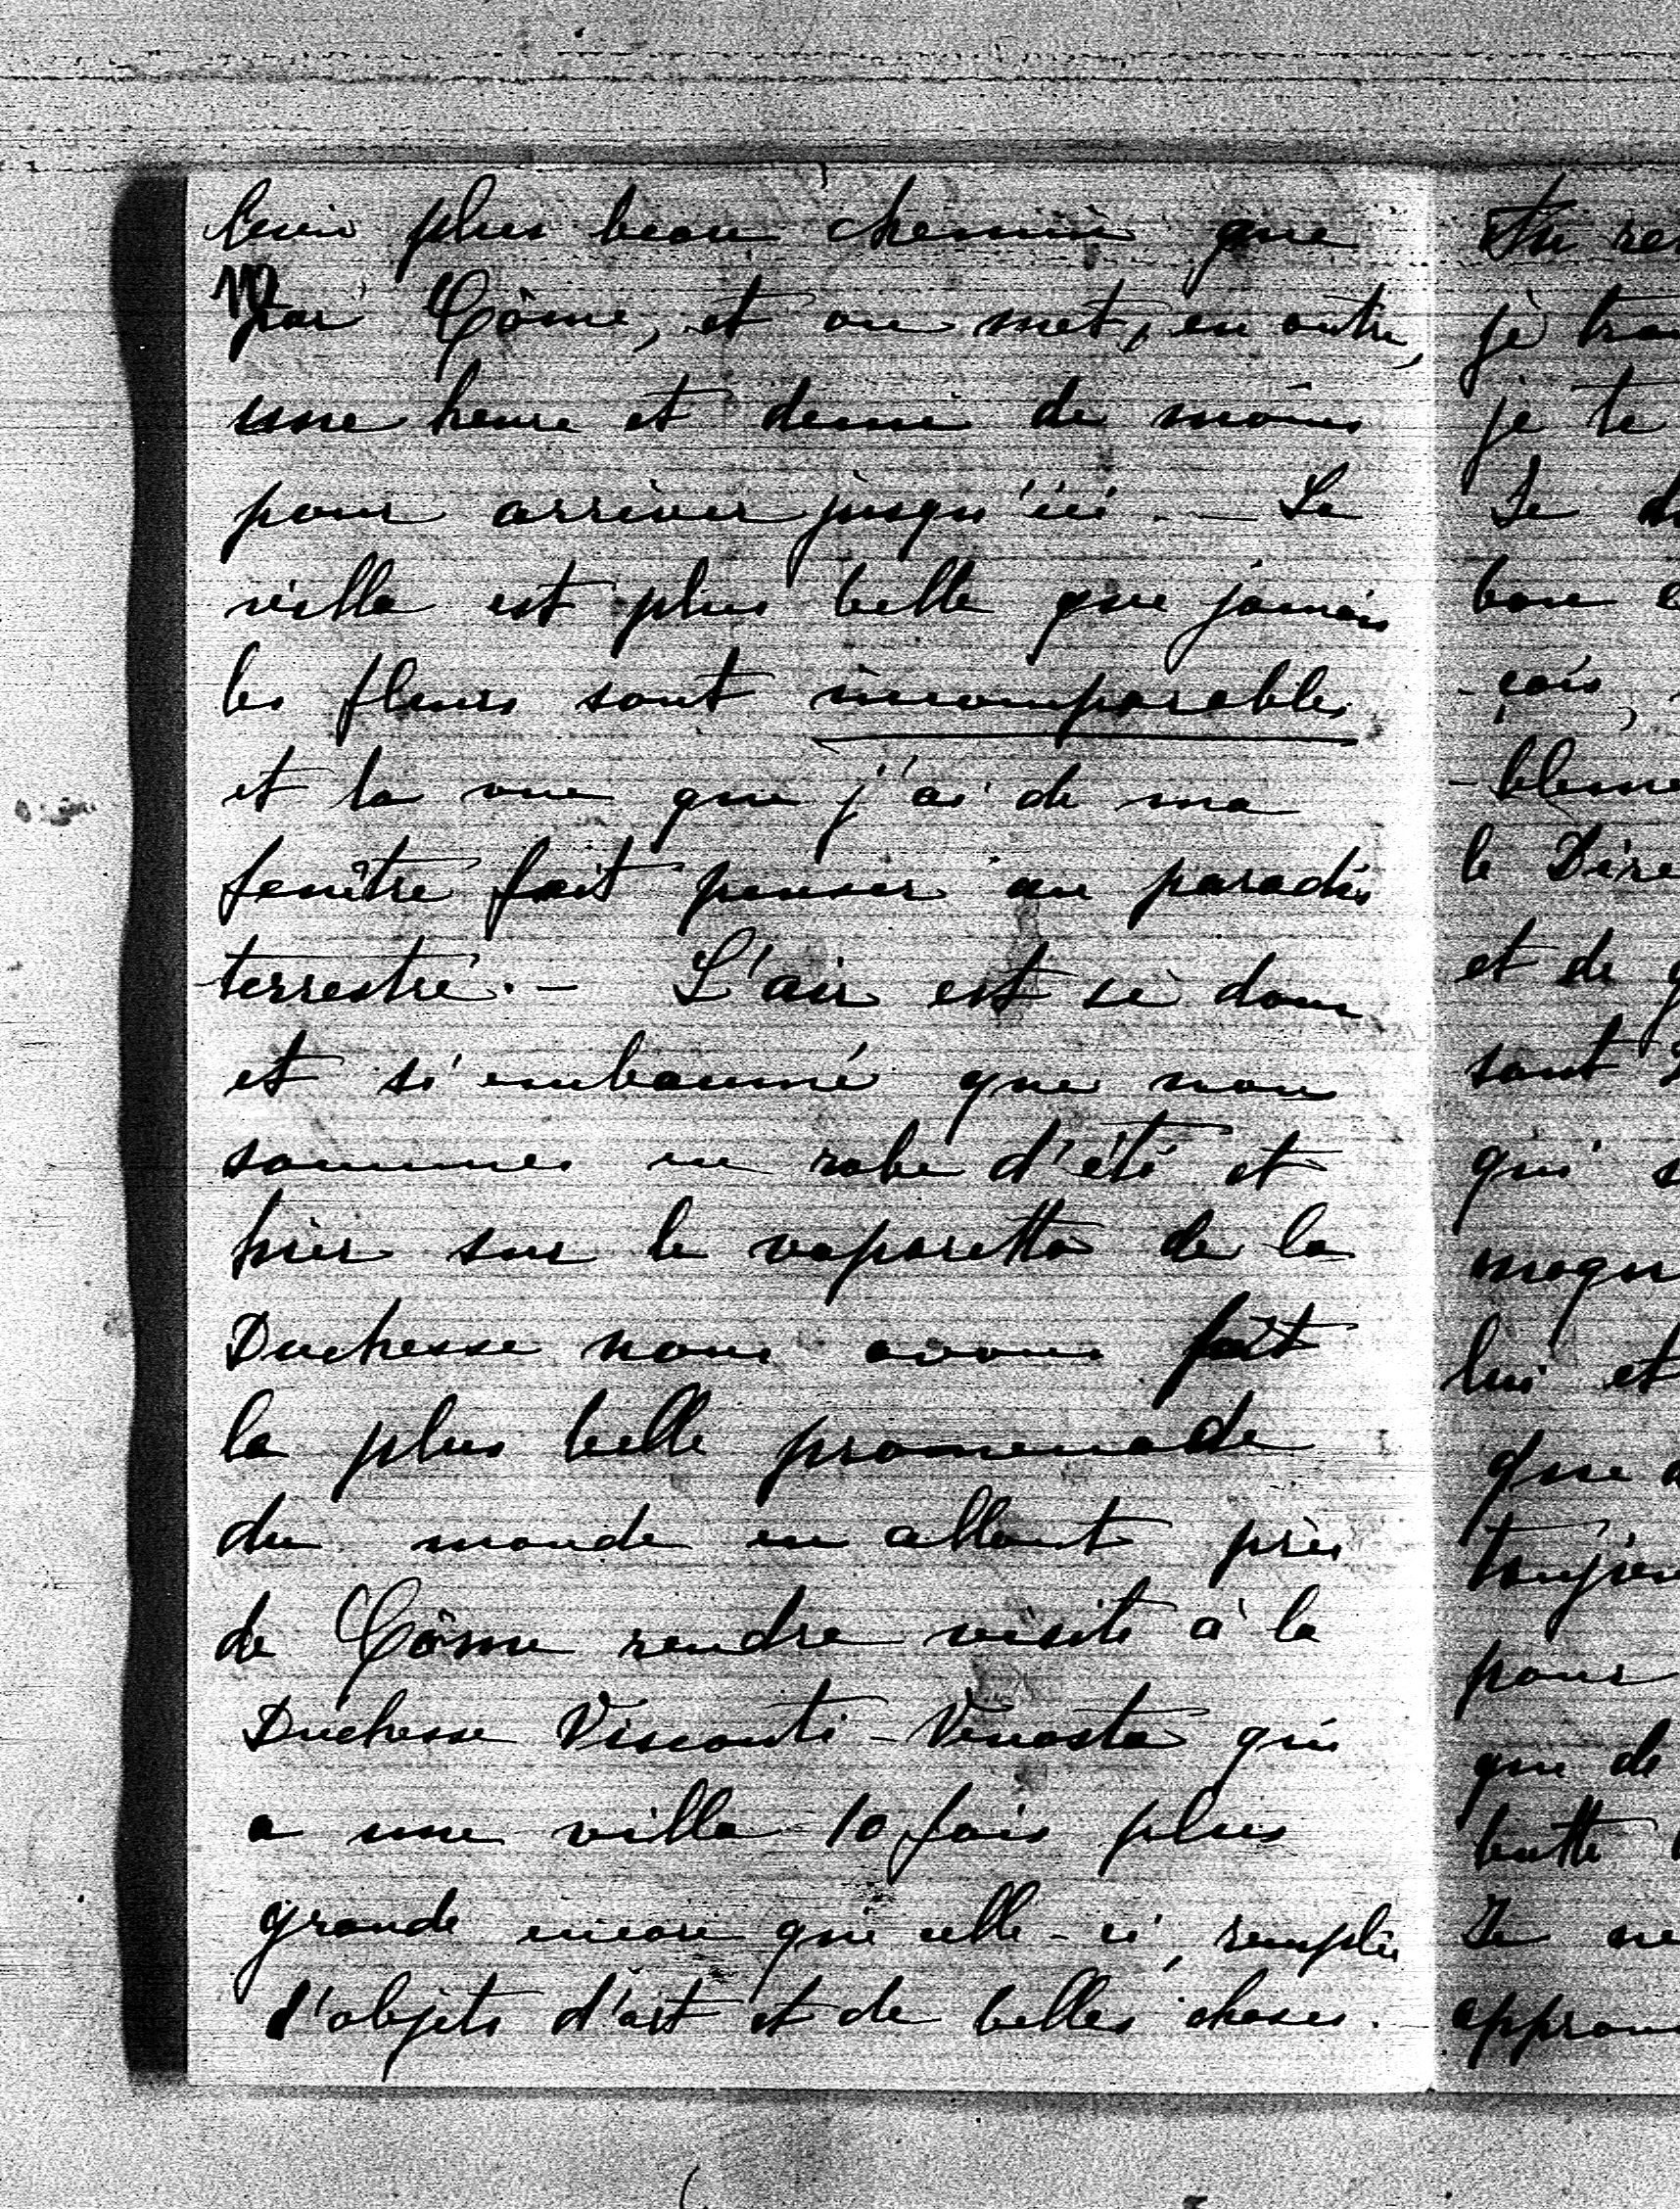 bien plus beau chemin que
par Côme, et on met, en outre,
une heure et demie de moins
pour arriver jusqu'ici. — La
villa est plus belle que jamais
les fleurs sont incomparables
et la vue que j'ai de ma
fenêtre fait penser au paradis
terrestre. — L'air est si doux
et si embaumé que nous
sommes en robe d'été et
hier sur le vaporetto de la
Duchesse nous avons fait
la plus belle promenade
du monde en allant près
de Côme rendre visite à la
Duchesse Visconti-Venosta qui
a une villa 10 fois plus
grande encore que celle-ci, remplie
d'objets d'art et de belles choses.
Tu re
je tra
je te
Je d
bon
-çois,
-bleme
le Dire
et de
sont
qui s
magn
lui et
que
toujou
pour
que de
butte
Je ne
approu